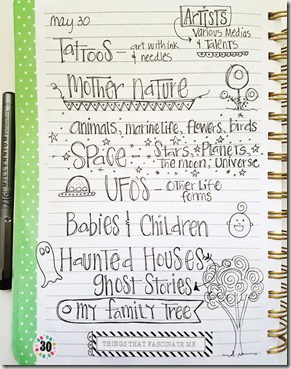 may 30
ARTISTS
Various Medias
& Talents
TATTOOS - art with ink
& needles
Mother Nature
animals, marine life, flowers, birds
SPACE - Stars, Planets,
The moon, Universe
UFOS - other Life
forms
Babies & Children
Haunted Houses
Ghost Stories
my family Tree
30
THINGS THAT FASCINATE ME